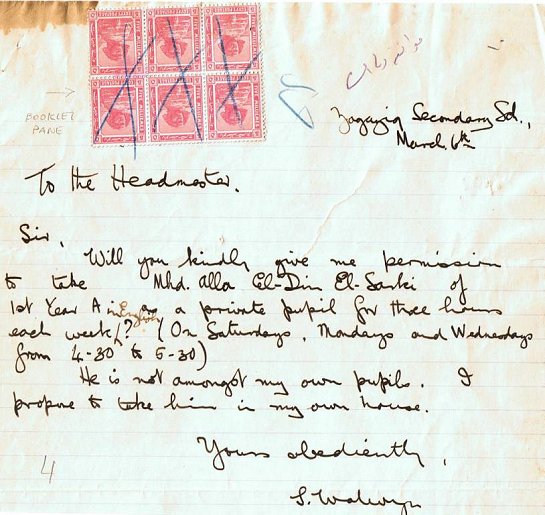 BOOKLET
PANE
Zagazig Secondary Scl.,
March 6th
To the Headmaster.
Sir,
Will you kindly give me permission
to take Mhd. Alla El-Din El-Sarki of
1st Year A in English as a private pupil for three hours
each week? (On Saturdays, Mondays and Wednesdays
from 4-30 to 5-30)
He is not amongst my own pupils. I
propose to take him in my own house.
Yours obediently,
S. Walwyn
4